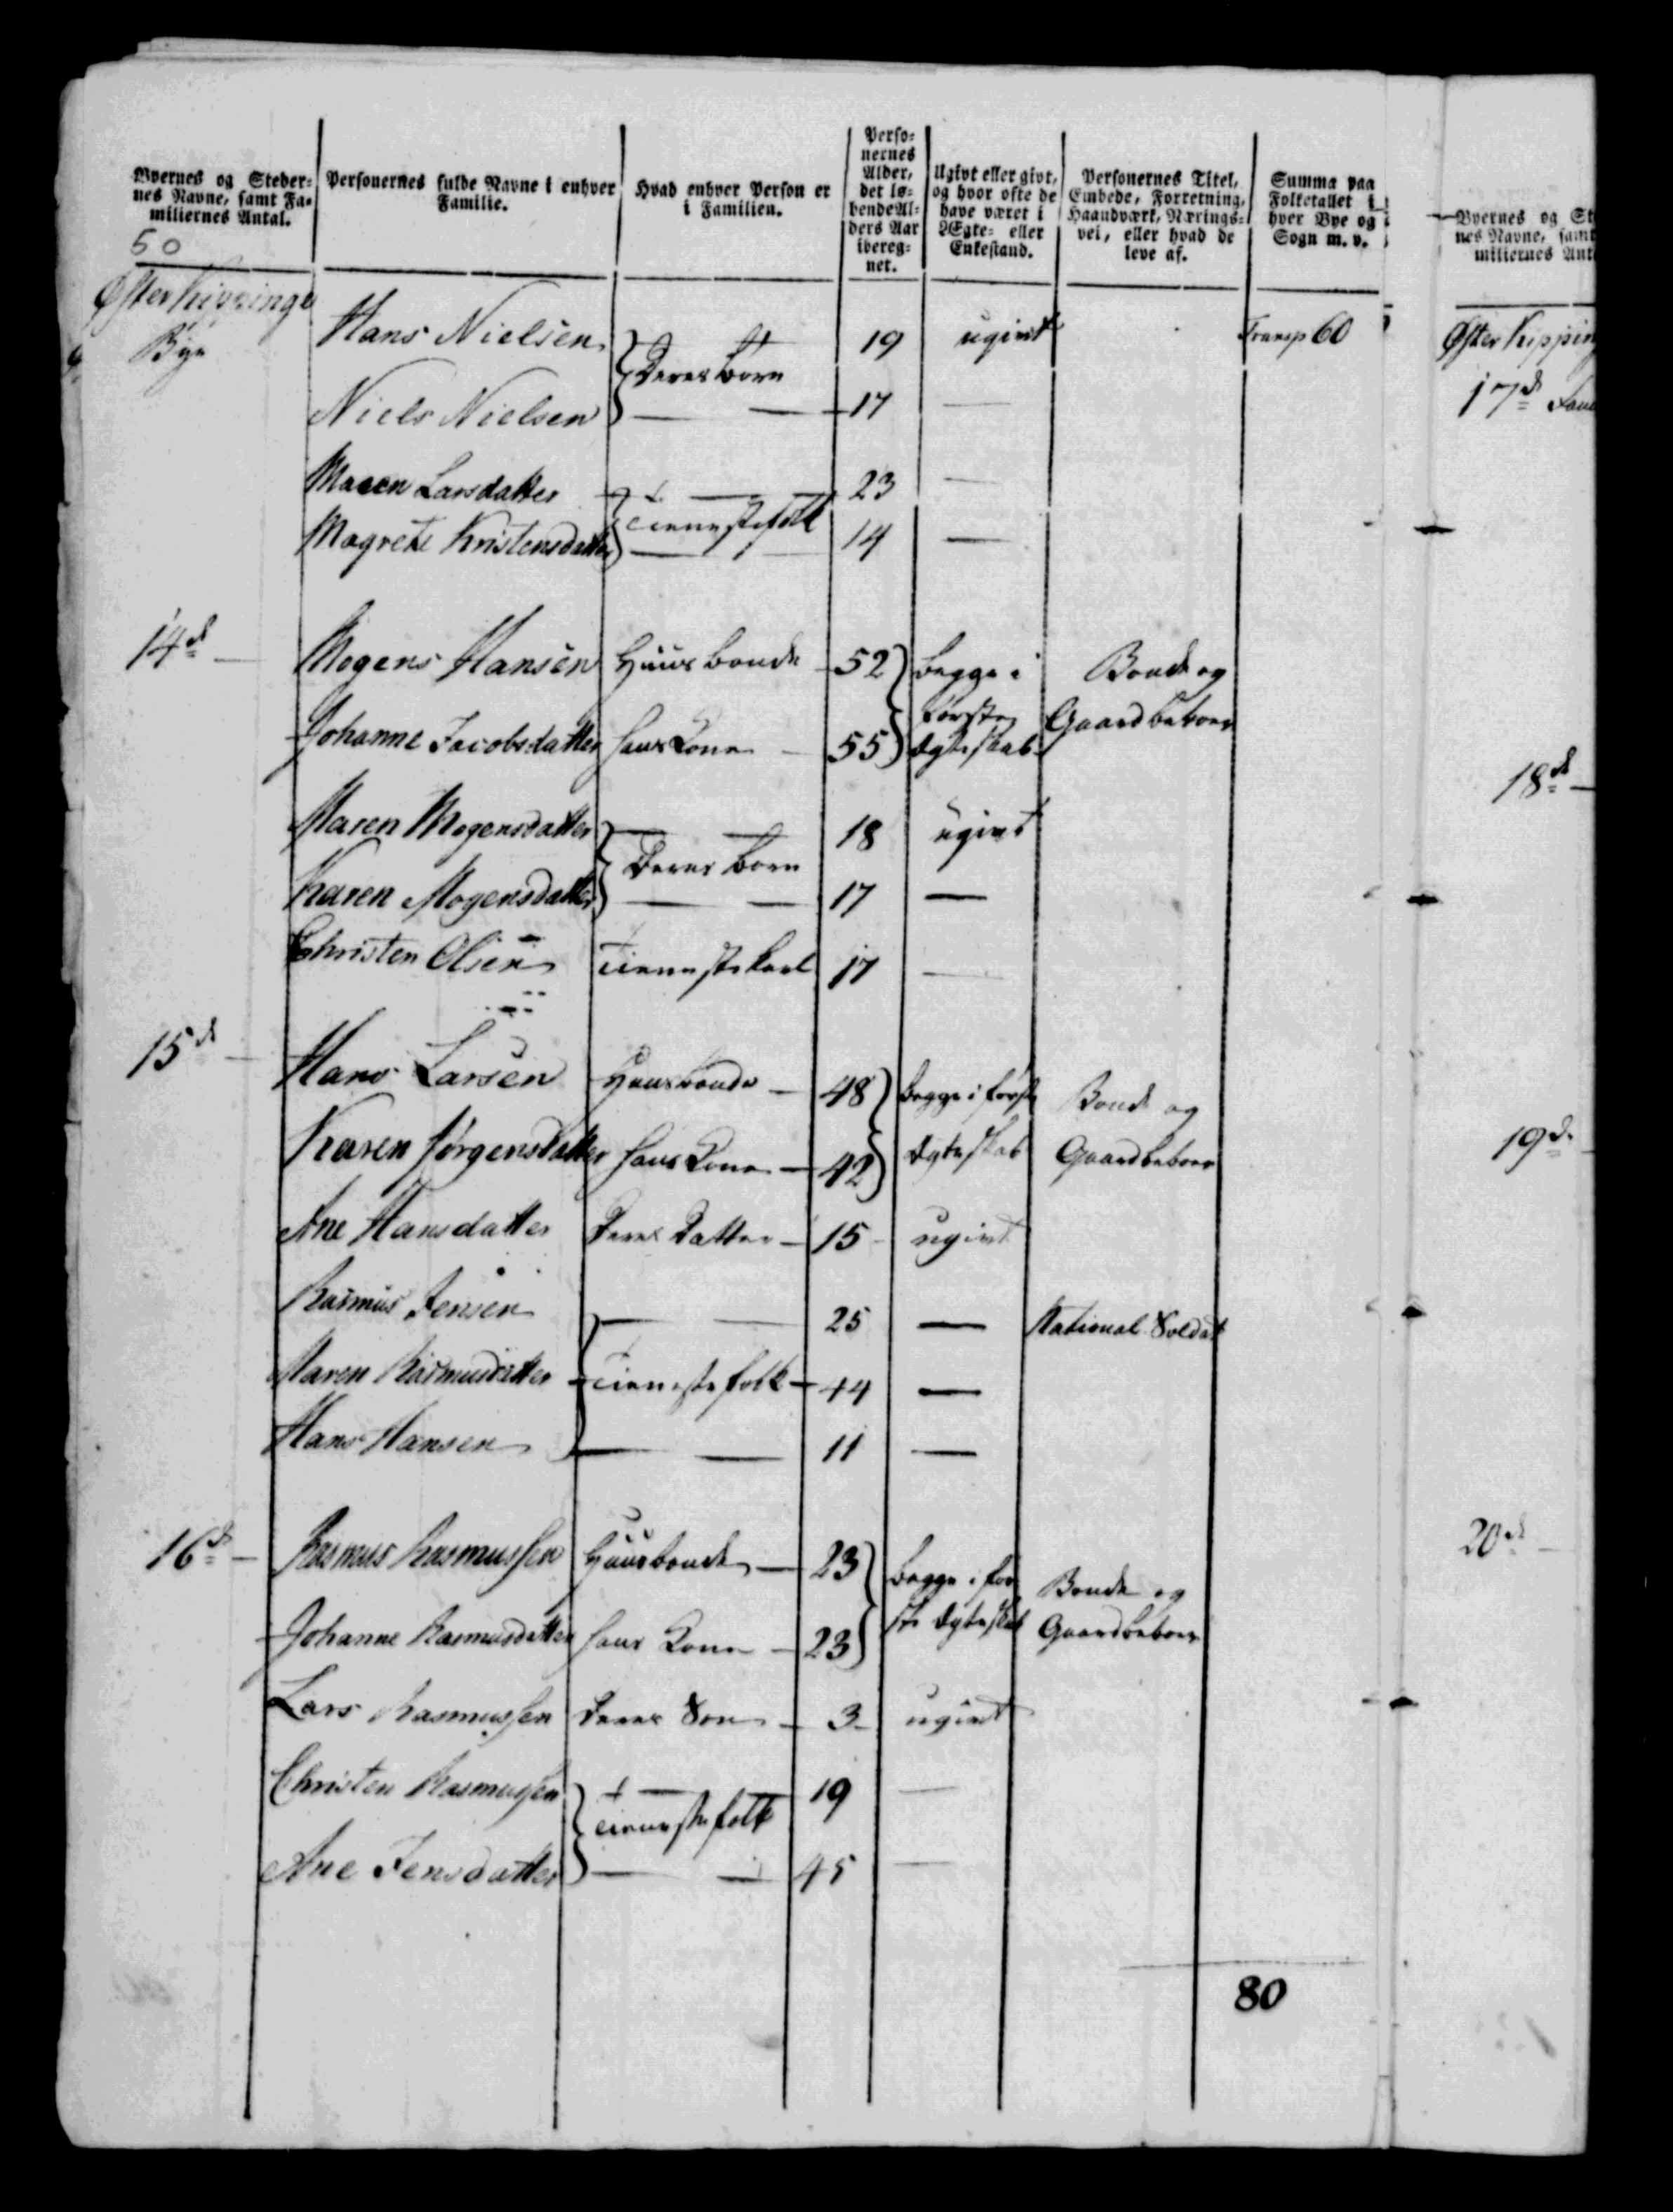 Byernes og Steder-
nes Navne, samt Fa-
miliernes Antal.
50
Personernes fulde Navne i enhver
Familie.
Hvad enhver Person er
i Familien.
Perso-
nernes
Alder,
det lø-
bende Al-
ders Aar
ibereg-
net.
Ugivt eller givt,
og hvor ofte de
have været i
Ægte- eller
Enkestand.
Personernes Titel,
Embede, Forretning,
Haandværk, Nærings-
vei, eller hvad de
leve af.
Summa paa
Folketallet i
hver Bye og
Sogn m. v.
Øster Kippinge
Bye
Hans Nielsen 19 ugivt Transp 60
Deres børn
Niels Nielsen — — 17 —
Maren Larsdatter — 23 —
Tienestefolk
Magrete Kristensdatter — 14 —
14de — Mogens Hansen Huusbonde 52 begge i Bonde og
første Gaardbeboer
Johanne Jacobsdatter hans Kone — 55 Ægteskab
Maren Mogensdatter — — 18 ugivt
Deres børn
Karen Mogensdatter — — 17 —
Christen Olsen Tienestekarl 17 —
15de — Hans Larsen Huusbonde — 48 begge i første Bonde og
Karen Jørgensdatter hans Kone — 42 Ægteskab Gaardbeboer
Ane Hansdatter Deres Datter — 15 ugivt
Rasmus Jensen — — 25 — National Soldat
Maren Rasmusdatter Tienestefolk — 44 —
Hans Hansen — — 11 —
16de — Rasmus Rasmussen Huusbonde — 23 begge i før Bonde og
ste Ægteskab Gaardbeboer
Johanne Rasmusdatter hans Kone — 23
Lars Rasmussen Deres Søn — 3 ugivt
Christen Rasmussen — 19 —
Tienestefolk
Ane Jensdatter — — 45 —
80
Byernes og St
nes Navne, samt
miliernes Ant
Øster Kipping
17de Fam
18de —
19de
20de —